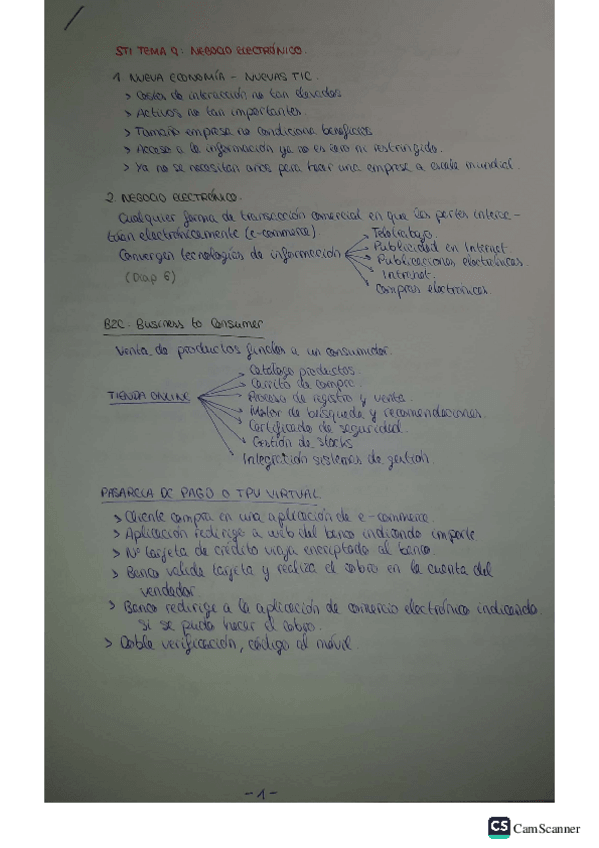 STI TEMA 9: NEGOCIO ELECTRÓNICO.
1. NUEVA ECONOMÍA - NUEVAS TIC.
> Costes de interacción no tan elevados
> Activos no tan importantes
> Tamaño empresa no condiciona beneficios
> Acceso a la información ya no es caro ni restringido.
> Ya no se necesitan años para crear una empresa a escala mundial.
2. NEGOCIO ELECTRÓNICO.
Cualquier forma de transacción comercial en que las partes interac-
túan electrónicamente (e-commerce)
Convergen tecnologías de información
Teletrabajo.
Publicidad en Internet.
Publicaciones electrónicas.
Intranet.
Compras electrónicas
(Diap 6)
B2C: Business to Consumer
Venta de productos finales a un consumidor.
TIENDA ONLINE
Catálogo productos.
Carrito de compra.
Proceso de registro y venta.
Motor de búsqueda y recomendaciones.
Certificado de seguridad.
Gestión de stocks
Integración sistemas de gestión.
PASARELA DE PAGO O TPV VIRTUAL
> Cliente compra en una aplicación de e-commerce.
> Aplicación redirige a web del banco indicando importe
> Nº tarjeta de crédito viaja encriptado al banco.
> Banco valida tarjeta y realiza el cobro en la cuenta del
vendedor.
> Banco redirige a la aplicación de comercio electrónico indicando
si se pudo hacer el cobro.
> Doble verificación, código al móvil.
-1-
CS CamScanner